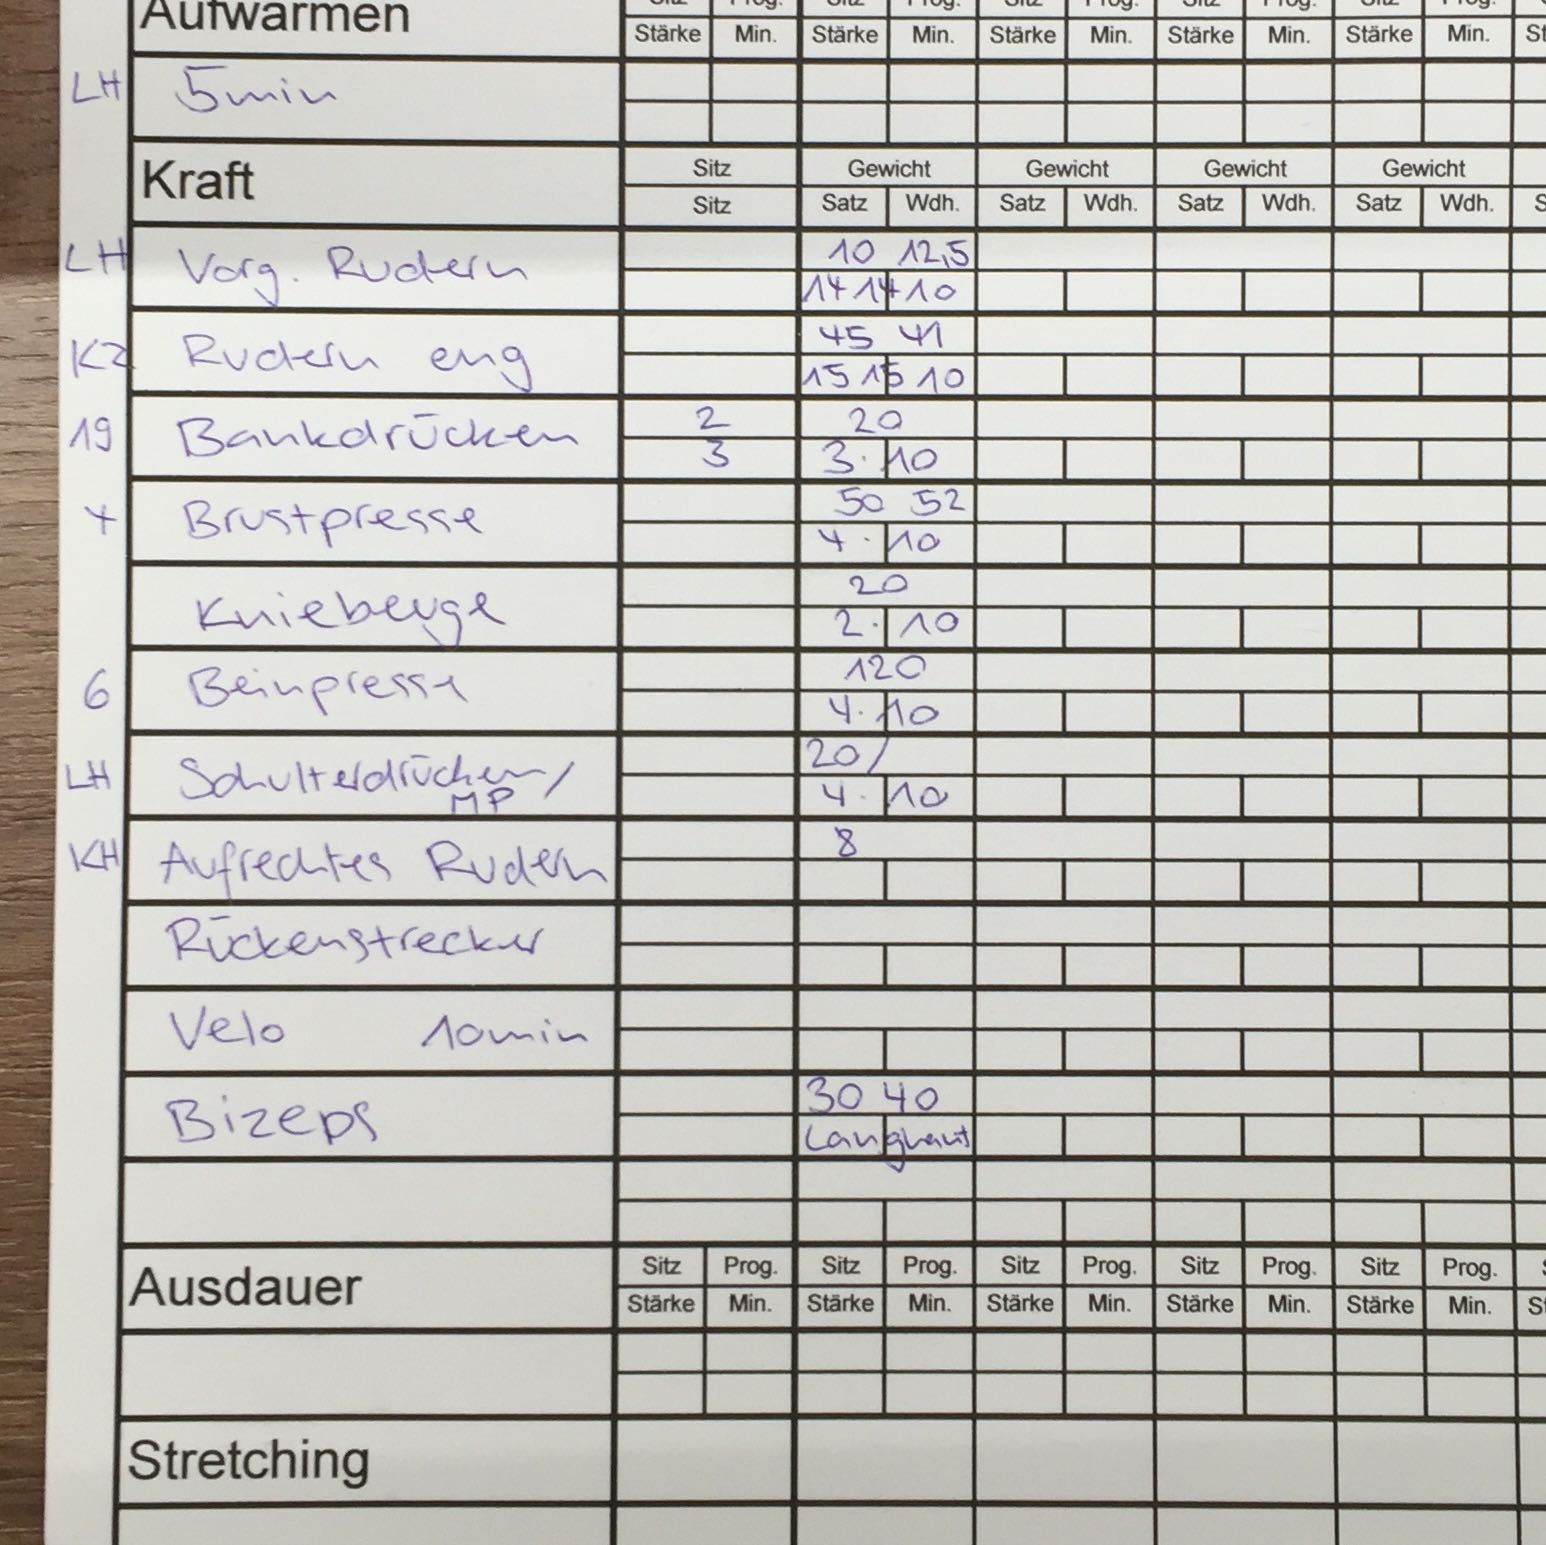 Aufwärmen
Sitz Prog. Sitz Prog. Sitz Prog. Sitz Prog. Sitz Prog.
Stärke Min. Stärke Min. Stärke Min. Stärke Min. Stärke Min. St
LH 5min
Kraft
Sitz Gewicht Gewicht Gewicht Gewicht
Sitz Satz Wdh. Satz Wdh. Satz Wdh. Satz Wdh. S
LH Vorg. Rudern 10 12,5
14 14 10
K2 Rudern eng 45 41
15 15 10
19 Bankdrücken 2 20
3 3·10
4 Brustpresse 50 52
4·10
Kniebeuge 20
2·10
6 Beinpresse 120
4·10
LH Schulterdrücken/ 20/
MP 4·10
KH Aufrechtes Rudern 8
Rückenstrecker
Velo 10min
Bizeps 30 40
Langhant
Ausdauer
Sitz Prog. Sitz Prog. Sitz Prog. Sitz Prog. Sitz Prog. S
Stärke Min. Stärke Min. Stärke Min. Stärke Min. Stärke Min. St
Stretching